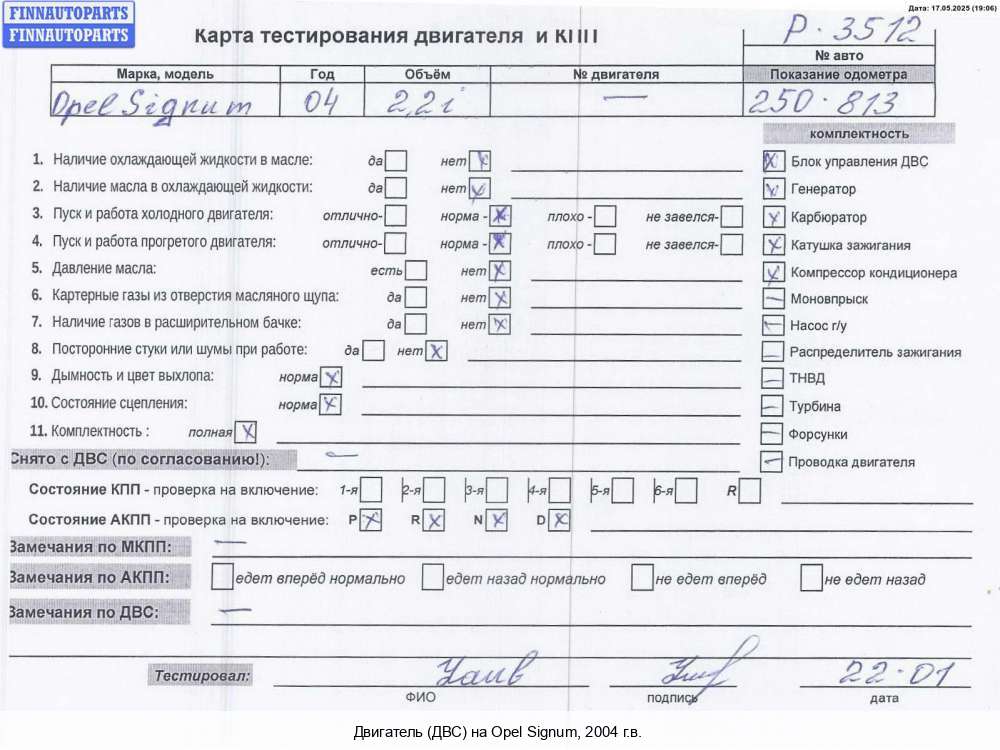 FINNAUTOPARTS
FINNAUTOPARTS
Дата: 17.05.2025 (19:06)
Карта тестирования двигателя и КПП
P-3512
№ авто
Марка, модель Год Объём № двигателя Показание одометра
Opel Signum 04 2,2i — 250.813
комплектность
1. Наличие охлаждающей жидкости в масле: да нет
Блок управления ДВС
2. Наличие масла в охлаждающей жидкости: да нет
Генератор
3. Пуск и работа холодного двигателя: отлично- норма - плохо - не завелся-
Карбюратор
4. Пуск и работа прогретого двигателя: отлично- норма - плохо - не завелся-
Катушка зажигания
5. Давление масла: есть нет
Компрессор кондиционера
6. Картерные газы из отверстия масляного щупа: да нет
Моновпрыск
7. Наличие газов в расширительном бачке: да нет
Насос г/у
8. Посторонние стуки или шумы при работе: да нет
Распределитель зажигания
9. Дымность и цвет выхлопа: норма
ТНВД
10. Состояние сцепления: норма
Турбина
11. Комплектность : полная
Форсунки
Снято с ДВС (по согласованию!): —
Проводка двигателя
Состояние КПП - проверка на включение: 1-я 2-я 3-я 4-я 5-я 6-я R
Состояние АКПП - проверка на включение: P R N D
Замечания по МКПП: —
Замечания по АКПП: едет вперёд нормально едет назад нормально не едет вперёд не едет назад
Замечания по ДВС: —
Тестировал: 22-01
ФИО подпись дата
Двигатель (ДВС) на Opel Signum, 2004 г.в.